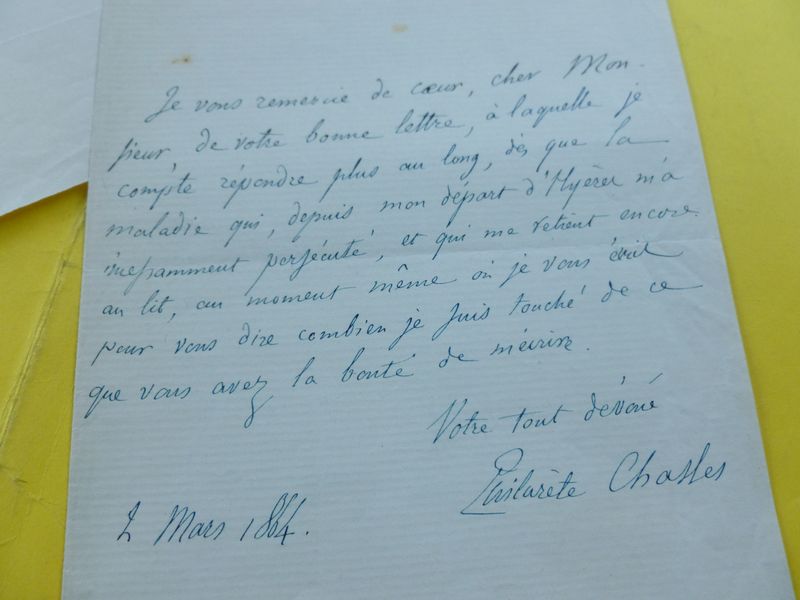 Je vous remercie de cœur, cher Mon-
sieur, de votre bonne lettre, à laquelle je
compte répondre plus au long, dès que la
maladie qui, depuis mon départ d'Hyères m'a
incessamment persécuté, et qui me retient encore
au lit, au moment même où je vous écris
pour vous dire combien je suis touché de ce
que vous avez la bonté de m'écrire.
Votre tout dévoué
Philarète Chasles
2 Mars 1864.